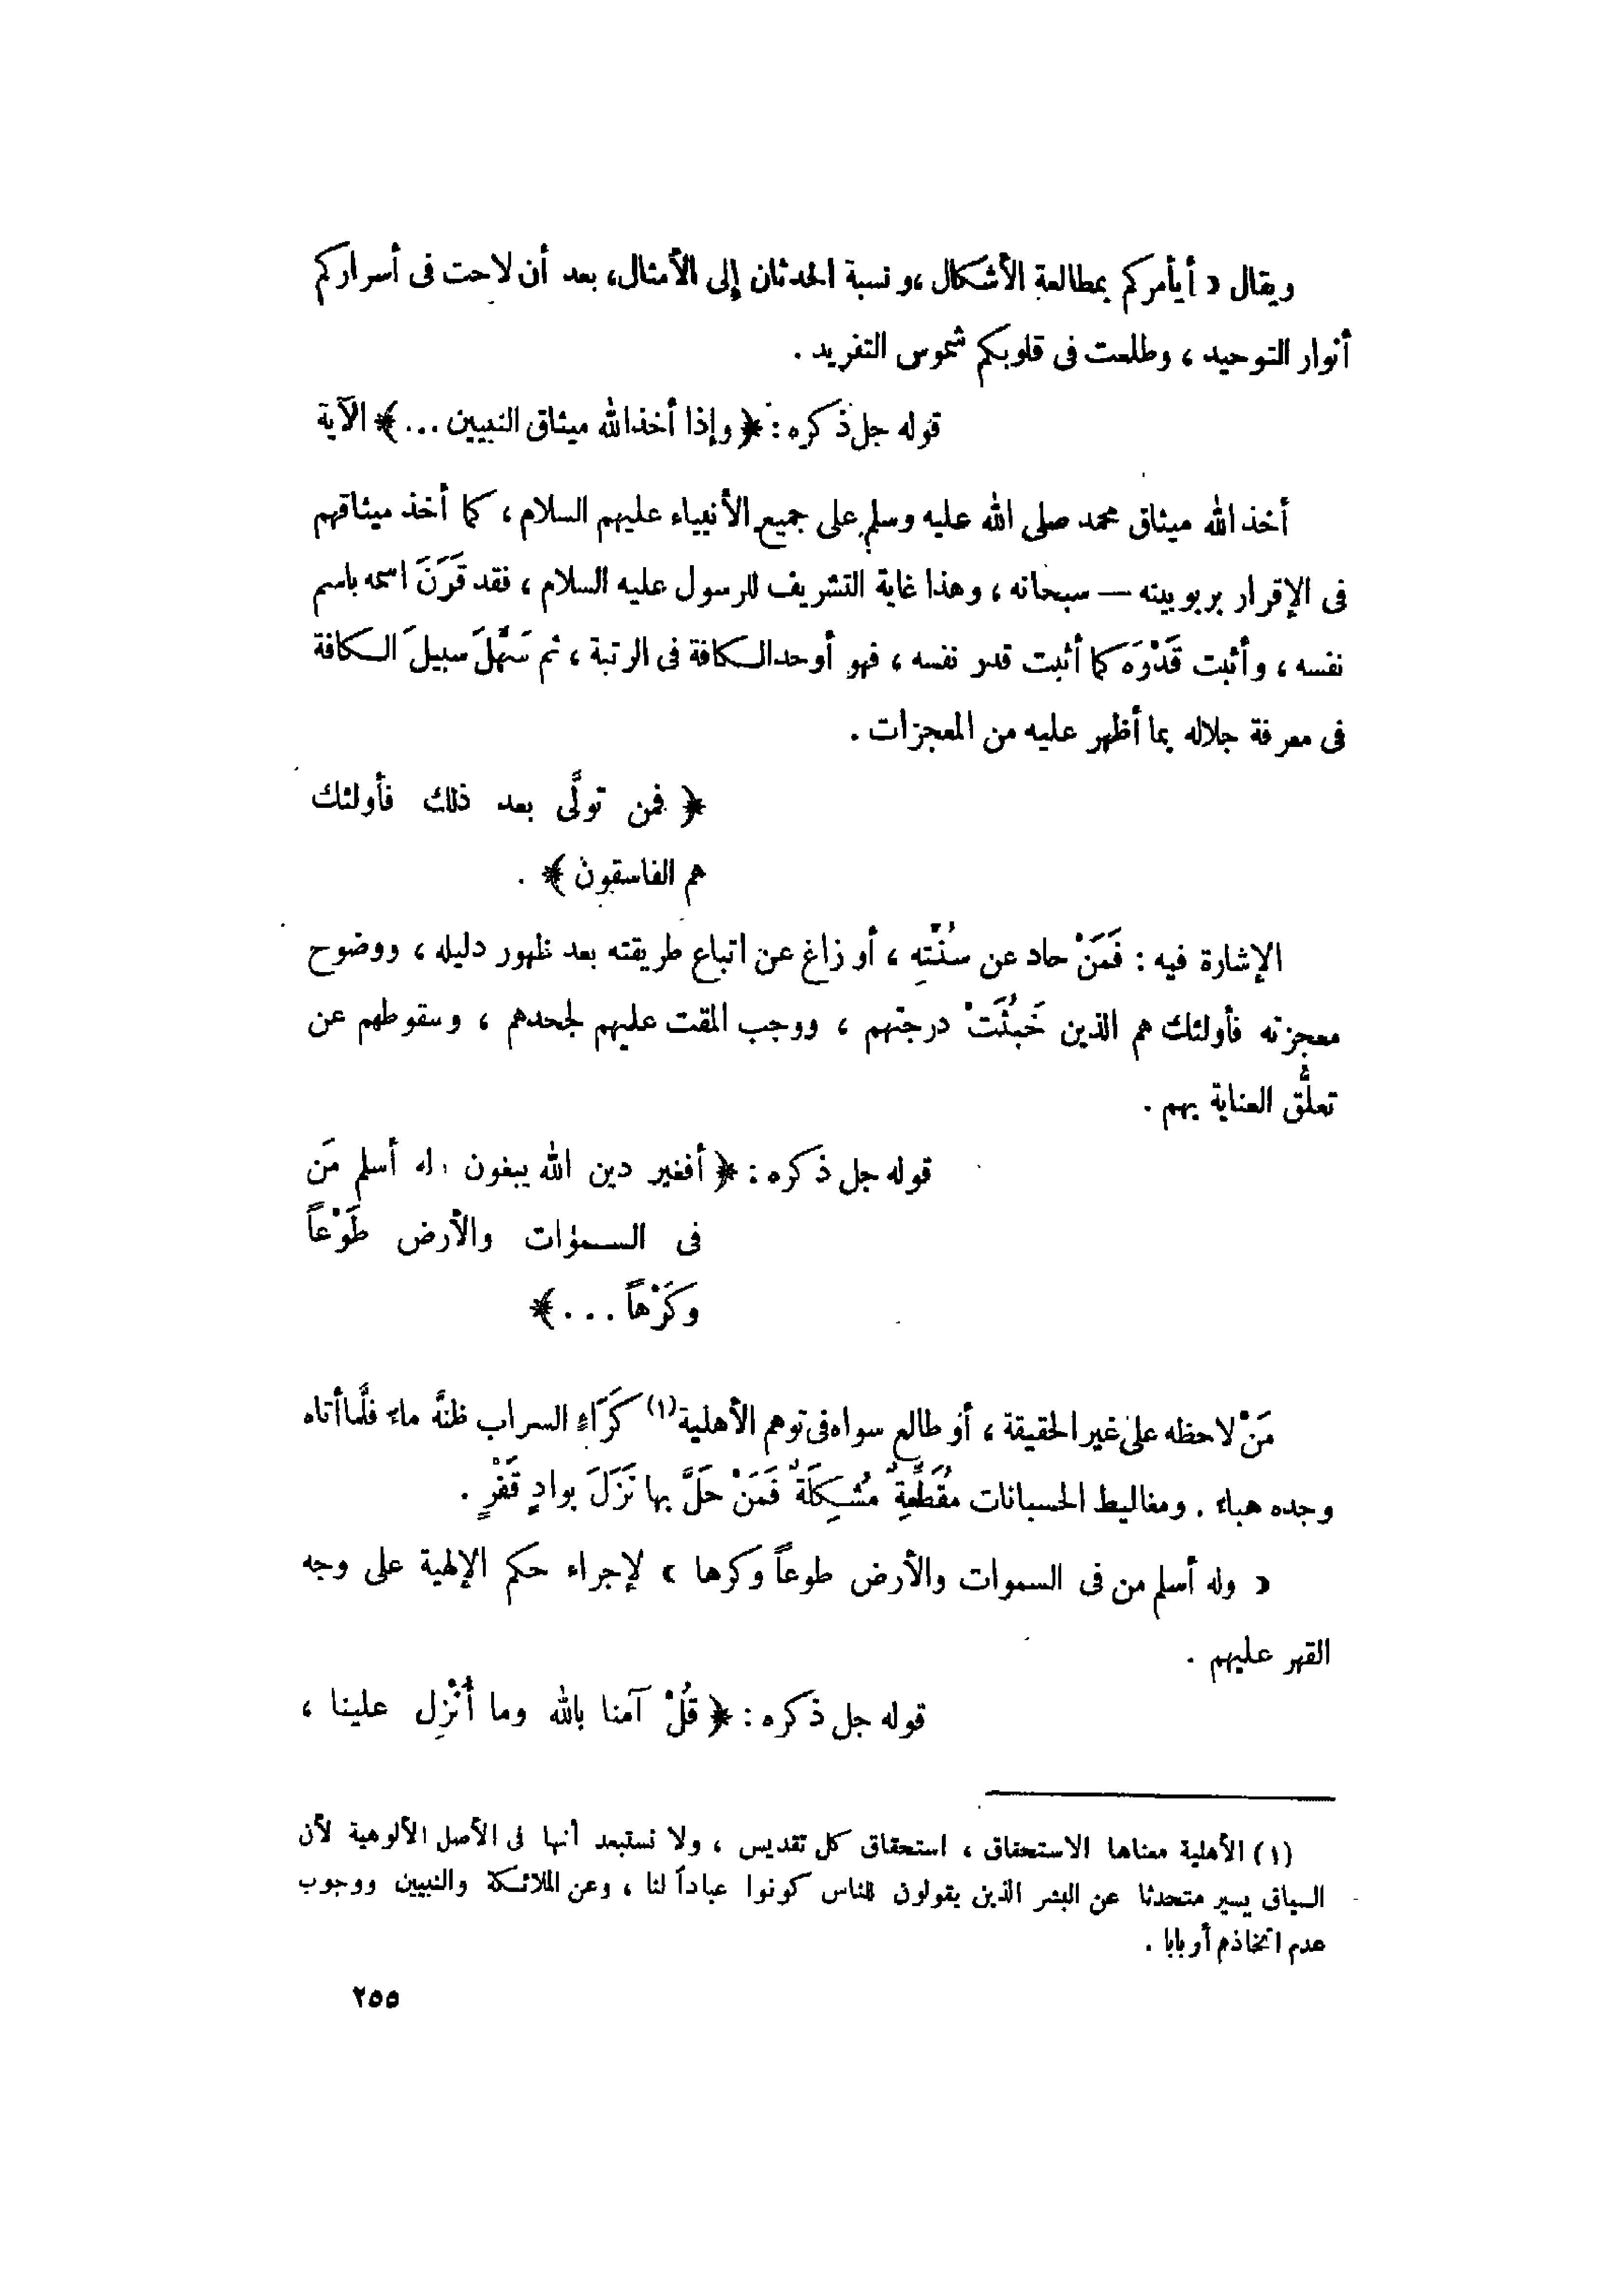 ويقال « أيأمركم بمطالعة الأشكال ، ونسبة الحدثان إلى الأمثال، بعد أن لاحت فى أسراركم
أنوار التوحيد ، وطلعت فى قلوبكم شموس التفريد .
قوله جل ذكره : ﴿ وإذا أخذ الله ميثاق النبيين ... ﴾ الآية
أخذ الله ميثاق محمد صلى الله عليه وسلم على جميع الأنبياء عليهم السلام ، كما أخذ ميثاقهم
فى الإقرار بربوبيته — سبحانه ، وهذا غاية التشريف للرسول عليه السلام ، فقد قَرَنَ اسمه باسم
نفسه ، وأثبت قَدْرَه كما أثبت قدر نفسه ، فهو أوحد الكافة فى الرتبة ، ثم سَهَّلَ سبيلَ الكافة
فى معرفة جلاله بما أظهر عليه من المعجزات .
﴿ فمن تولَّى بعد ذلك فأولئك
هم الفاسقون ﴾ .
الإشارة فيه : فَمَنْ حاد عن سُنَّتِه ، أو زاغ عن اتباع طريقته بعد ظهور دليله ، ووضوح
معجزته فأولئك هم الذين خَبُثَتْ درجتهم ، ووجب المقت عليهم لجحدهم ، وسقوطهم عن
تعلُّق العناية بهم .
قوله جل ذكره : ﴿ أفغير دين الله يبغون وله أسلم مَن
فى السموٰات والأرض طَوْعاً
وكَرْهاً ... ﴾
مَنْ لاحظه على غير الحقيقة ، أو طالع سواه فى توهم الأهلية (١) كَرَاءِ السراب ظنَّه ماء فلَّما أتاه
وجده هباء . ومغاليط الحسبانات مُقَطِّعةٌ مُشكِلَةٌ فَمَنْ حَلَّ بها نَزَلَ بوادٍ قَفْرٍ .
« وله أسلم من فى السموات والأرض طوعاً وكرها » لإجراء حكم الإلهية على وجه
القهر عليهم .
قوله جل ذكره : ﴿ قُلْ آمنا بالله وما أُنْزِل علينا ،
(١) الأهلية معناها الاستحقاق ، استحقاق كل تقديس ، ولا نستبعد أنها فى الأصل الألوهية لأن
السياق يسير متحدثا عن البشر الذين يقولون للناس كونوا عباداً لنا ، وعن الملائكة والنبيين ووجوب
عدم اتخاذهم أربابا .
٢٥٥